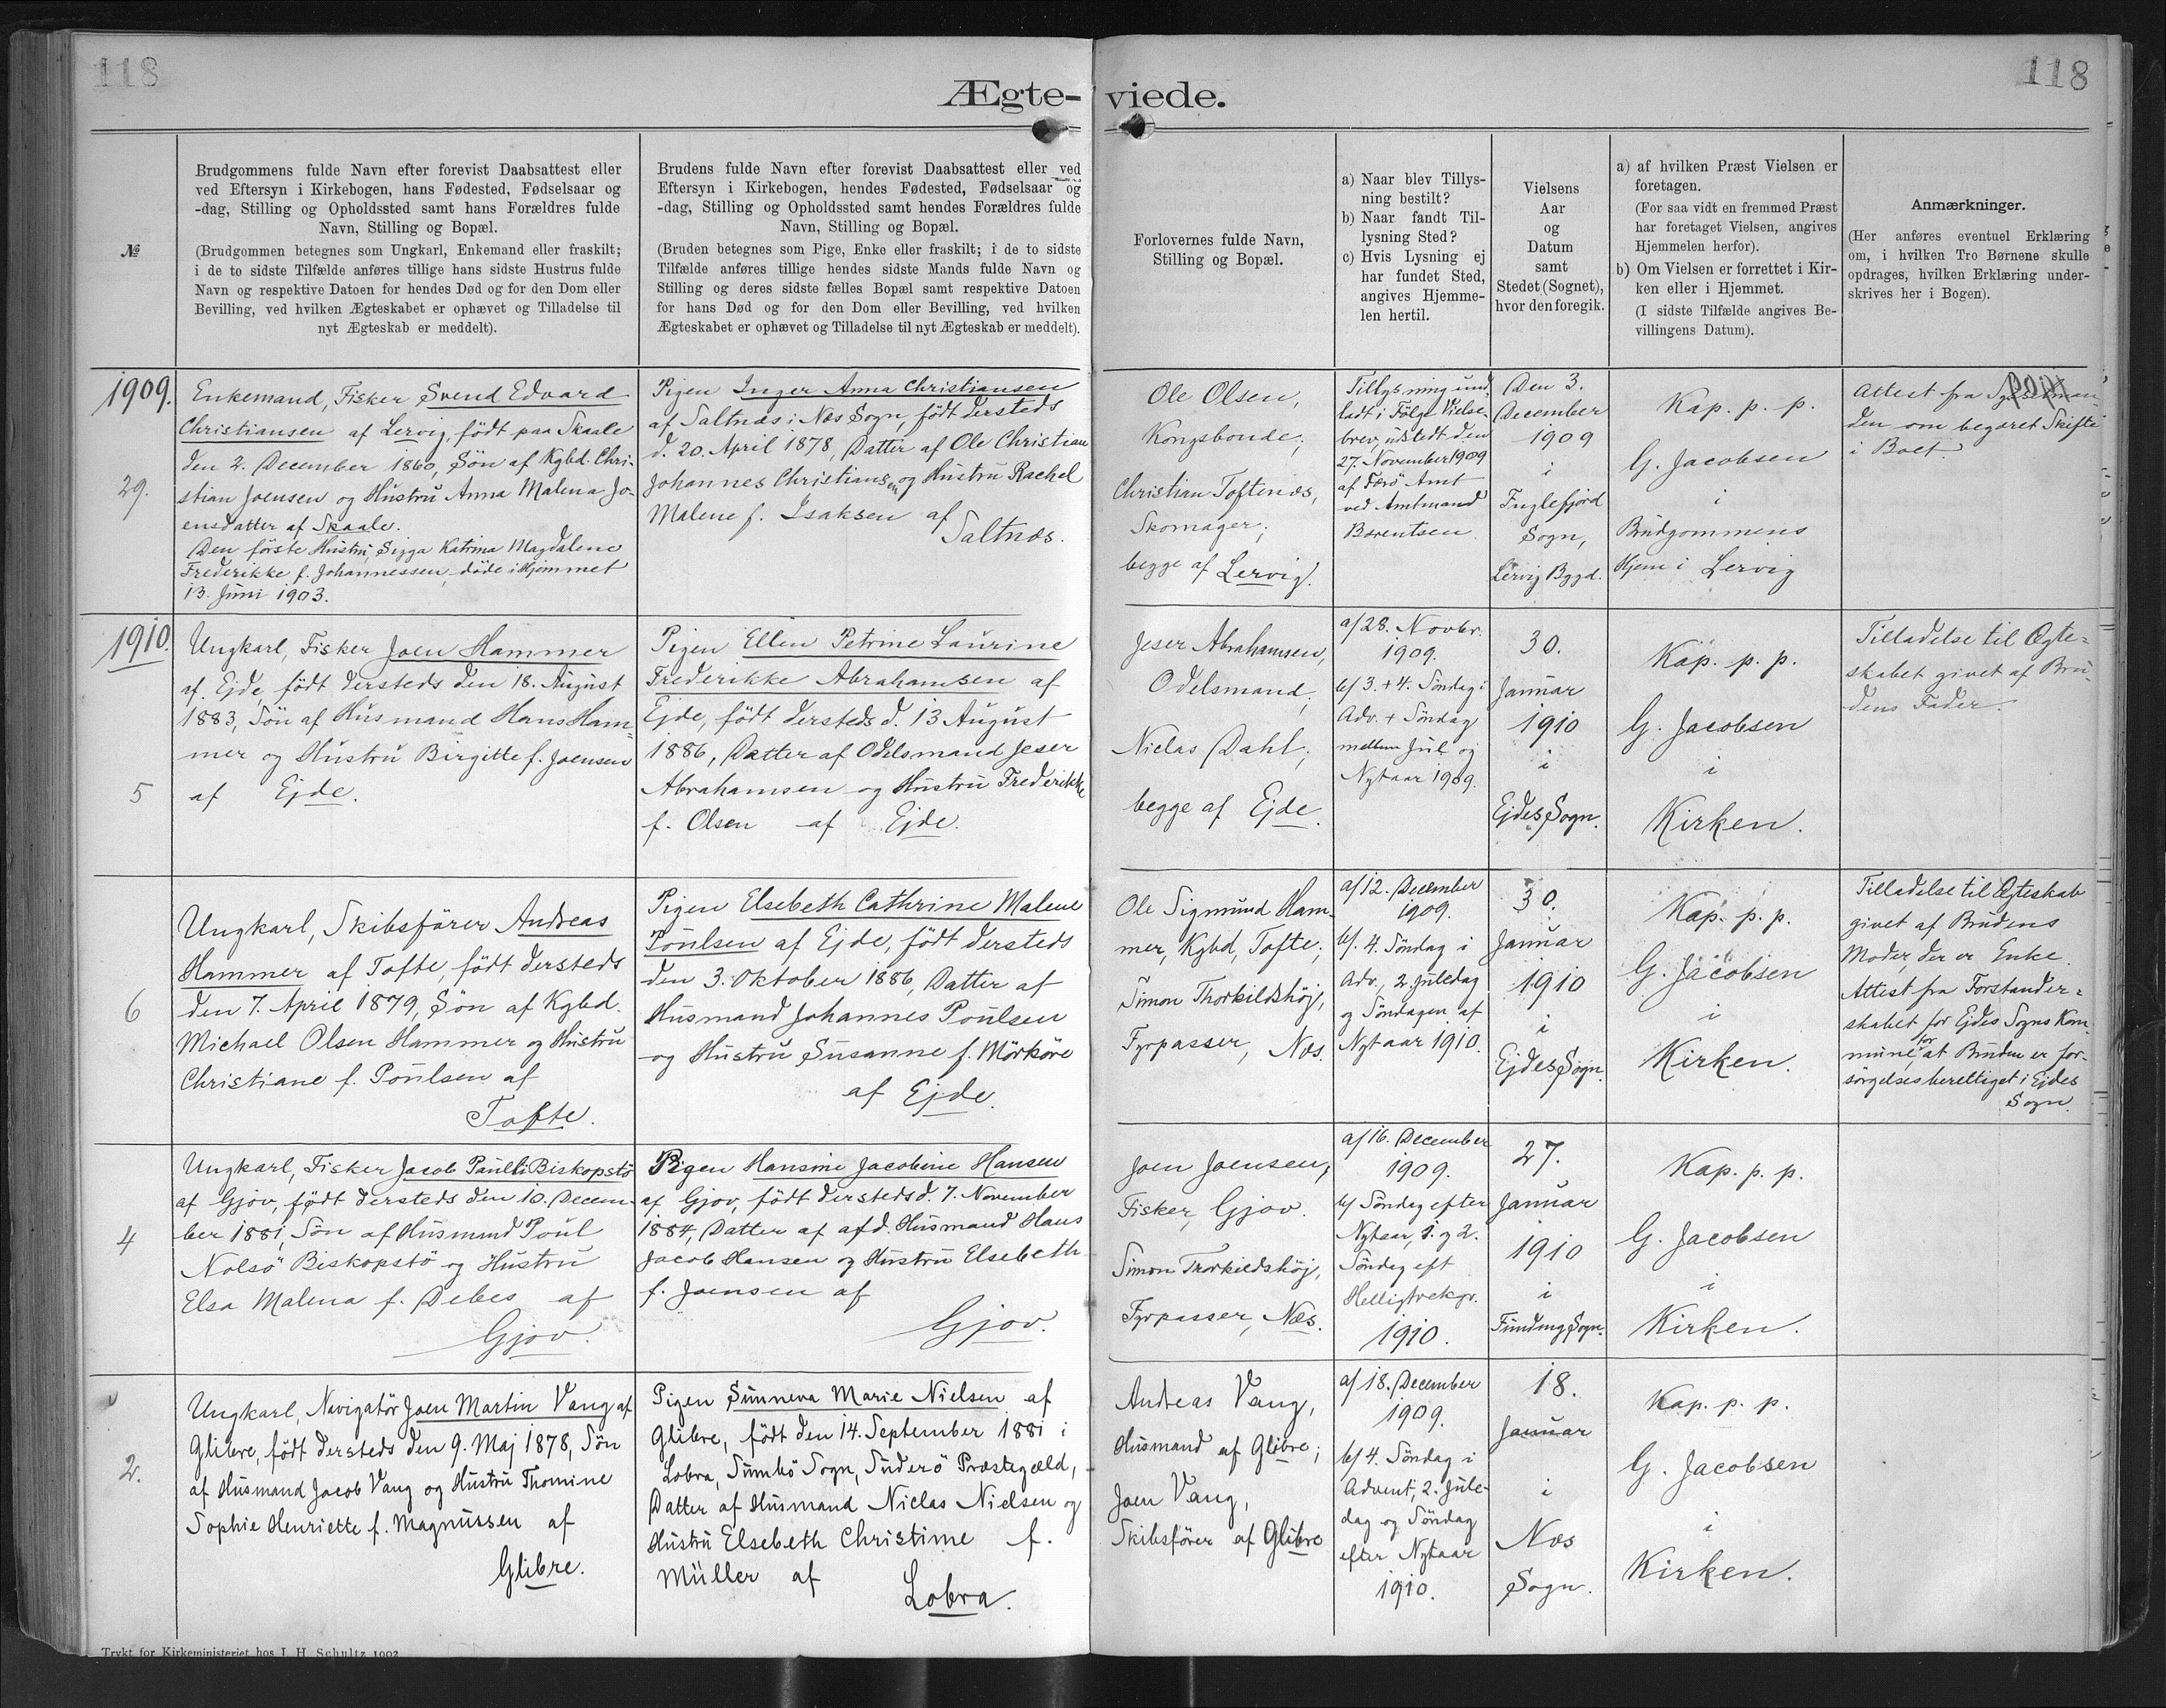 118
118
Ægte-
viede.
№
Brudgommens fulde Navn efter forevist Daabsattest eller
ved Eftersyn i Kirkebogen, hans Fødested, Fødselsaar og
-dag, Stilling og Opholdssted samt hans Forældres fulde
Navn, Stilling og Bopæl.
(Brudgommen betegnes som Ungkarl, Enkemand eller fraskilt;
i de to sidste Tilfælde anføres tillige hans sidste Hustrus fulde
Navn og respektive Datoen for hendes Død og for den Dom eller
Bevilling, ved hvilken Ægteskabet er ophævet og Tilladelse til
nyt Ægteskab er meddelt).
Brudens fulde Navn efter forevist Daabsattest eller ved
Eftersyn i Kirkebogen, hendes Fødested, Fødselsaar og
-dag, Stilling og Opholdssted samt hendes Forældres fulde
Navn, Stilling og Bopæl.
(Bruden betegnes som Pige, Enke eller fraskilt; i de to sidste
Tilfælde anføres tillige hendes sidste Mands fulde Navn og
Stilling og deres sidste fælles Bopæl samt respektive Datoen
for hans Død og for den Dom eller Bevilling, ved hvilken
Ægteskabet er ophævet og Tilladelse til nyt Ægteskab er meddelt).
Forlovernes fulde Navn,
Stilling og Bopæl.
a) Naar blev Tillys-
ning bestilt?
b) Naar fandt Til-
lysning Sted?
c) Hvis Lysning ej
har fundet Sted,
angives Hjemme-
len hertil.
Vielsens
Aar
og
Datum
samt
Stedet (Sognet),
hvor den foregik.
a) af hvilken Præst Vielsen er
foretagen.
(For saa vidt en fremmed Præst
har foretaget Vielsen, angives
Hjemmelen herfor).
b) Om Vielsen er forrettet i Kir-
ken eller i Hjemmet.
(I sidste Tilfælde angives Be-
villingens Datum).
Anmærkninger.
(Her anføres eventuel Erklæring
om, i hvilken Tro Børnene skulle
opdrages, hvilken Erklæring under-
skrives her i Bogen).
1909.
29.
Enkemand, Fisker Svend Edvard
Christiansen af Lervig, født paa Skaale
den 2. December 1860, Søn af Kgbd. Chri-
stian Joensen og Hustru Anna Malena Jo-
ensdatter af Skaale.
Den første Hustru, Sigga Katrina Magdalene
Frederikke f. Johannessen, døde i Hjemmet
13. Juni 1903.
Pigen Inger Anna Christiansen
af Saltnæs i Næs Sogn, født dersteds
d. 20. April 1878, Datter af Ole Christian
Johannes Christiansen og Hustru Rachel
Malene f. Isaksen af
Saltnæs.
Ole Olsen,
Kongsbonde;
Christian Toftenæs,
Skomager;
begge af Lervig.
Tillysning und-
ladt i Følge Vielse-
brev, udstedt den
27. November 1909
af Færø Amt
ved Amtmand
Bærentsen.
Den 3.
December
1909
i
Fuglefjord
Sogn,
Lervig Bygd.
Kap. p. p.
G. Jacobsen
i
Brudgommens
Hjem i Lervig
Attest fra
den om begæret Skifte
i Boet.
1910.
5
Ungkarl, Fisker Joen Hammer
af Ejde, født dersteds den 18. August
1883, Søn af Husmand Hans Ham=
mer og Hustru Birgitte f. Joensen
af Ejde.
Pigen Ellen Petrine Laurine
Frederikke Abrahamsen af
Ejde, født dersteds d. 13 August
1886, Datter af Odelsmand Jeser
Abrahamsen og Hustru Frederikke
f. Olsen af Ejde.
Jeser Abrahamsen,
Odelsmand;
Niclas Dahl;
begge af Ejde.
a/ 28. Novbr.
1909.
b/ 3. + 4. Søndag i
Adv. + Søndag
mellem Jul og
Nytaar 1909.
30.
Januar
1910
i
Ejdes Sogn.
Kap. p. p.
G. Jacobsen
i
Kirken.
Tilladelse til Ægte=
skabet givet af Bru-
dens Fader.
6
Ungkarl, Skibsfører Andreas
Hammer af Tofte, født dersteds
den 7. April 1879, Søn af Kgbd.
Michael Olsen Hammer og Hustru
Christiane f. Poulsen af
Tofte.
Pigen Elsebeth Cathrine Malene
Poulsen af Ejde, født dersteds
den 3. Oktober 1886, Datter af
Husmand Johannes Poulsen
og Hustru Susanne f. Mørkøre
af Ejde.
Ole Sigmund Ham-
mer, Kgbd, Tofte;
Simon Thorkildshøj,
Fyrpasser, Næs.
a/ 12. December
1909.
b/. 4. Søndag i
Adv., 2. Juledag
og Søndagen af
Nytaar 1910.
30.
Januar
1910
i
Ejdes Sogn.
Kap. p. p.
G. Jacobsen
i
Kirken.
Tilladelse til Ægteskab
givet af Brudens
Moder, der er Enke.
Attest fra Forstander=
skabet for Ejdes Sogns Kom-
mune, for at Bruden er for-
sørgelsesberettiget i Ejdes
Sogn.
4
Ungkarl, Fisker Jacob Paulli Biskopstø
af Gjov, født dersteds den 10. Decem-
ber 1881, Søn af Husmand Poul
Nolsø Biskopstø og Hustru
Elsa Malena f. Debes af
Gjov.
Pigen Hansine Jacobine Hansen
af Gjov, født dersteds d. 7. November
1884, Datter af afd. Husmand Hans
Jacob Hansen og Hustru Elsebeth
f. Joensen af
Gjov.
Joen Joensen,
Fisker, Gjov.
Simon Thorkildshøj,
Fyrpasser, Næs.
a/ 16. December
1909.
b/ Søndag efter
Nytaar, 1. og 2.
Søndag eft
Helligtrekgr.
1910.
27.
Januar
1910
i
Funding Sogn.
Kap. p. p.
G. Jacobsen
i
Kirken.
2.
Ungkarl, Navigatør Joen Martin Vang af
Glibre, født dersteds den 9. Maj 1878, Søn
af Husmand Jacob Vang og Hustru Thomine
Sophie Henriette f. Magnussen af
Glibre.
Pigen Sunneva Marie Nielsen af
Glibre, født den 14. September 1881 i
Lobra, Sumbø Sogn, Suderø Præstegæld,
Datter af Husmand Niclas Nielsen og
Hustru Elsebeth Christine f.
Müller af
Lobra.
Andreas Vang,
Husmand af Glibre;
Joen Vang,
Skibsfører af Glibre
a/ 18. December
1909.
b/ 4. Søndag i
Advent, 2. Jule-
dag og Søndag
efter Nytaar
1910.
18.
Januar
i
Næs
Sogn.
Kap. p. p.
G. Jacobsen
i
Kirken.
Trykt for Kirkeministeriet hos J. H. Schultz 1903